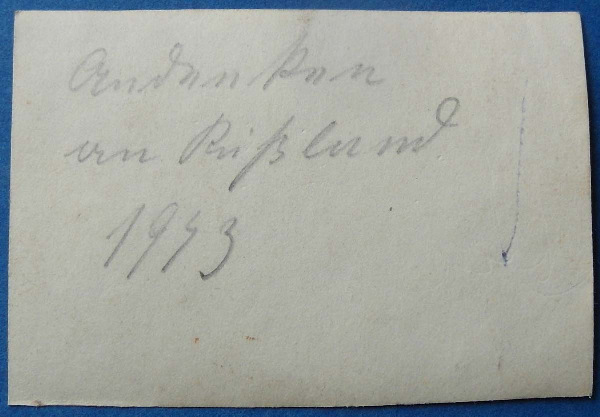 Andenken
an Rußland
1943